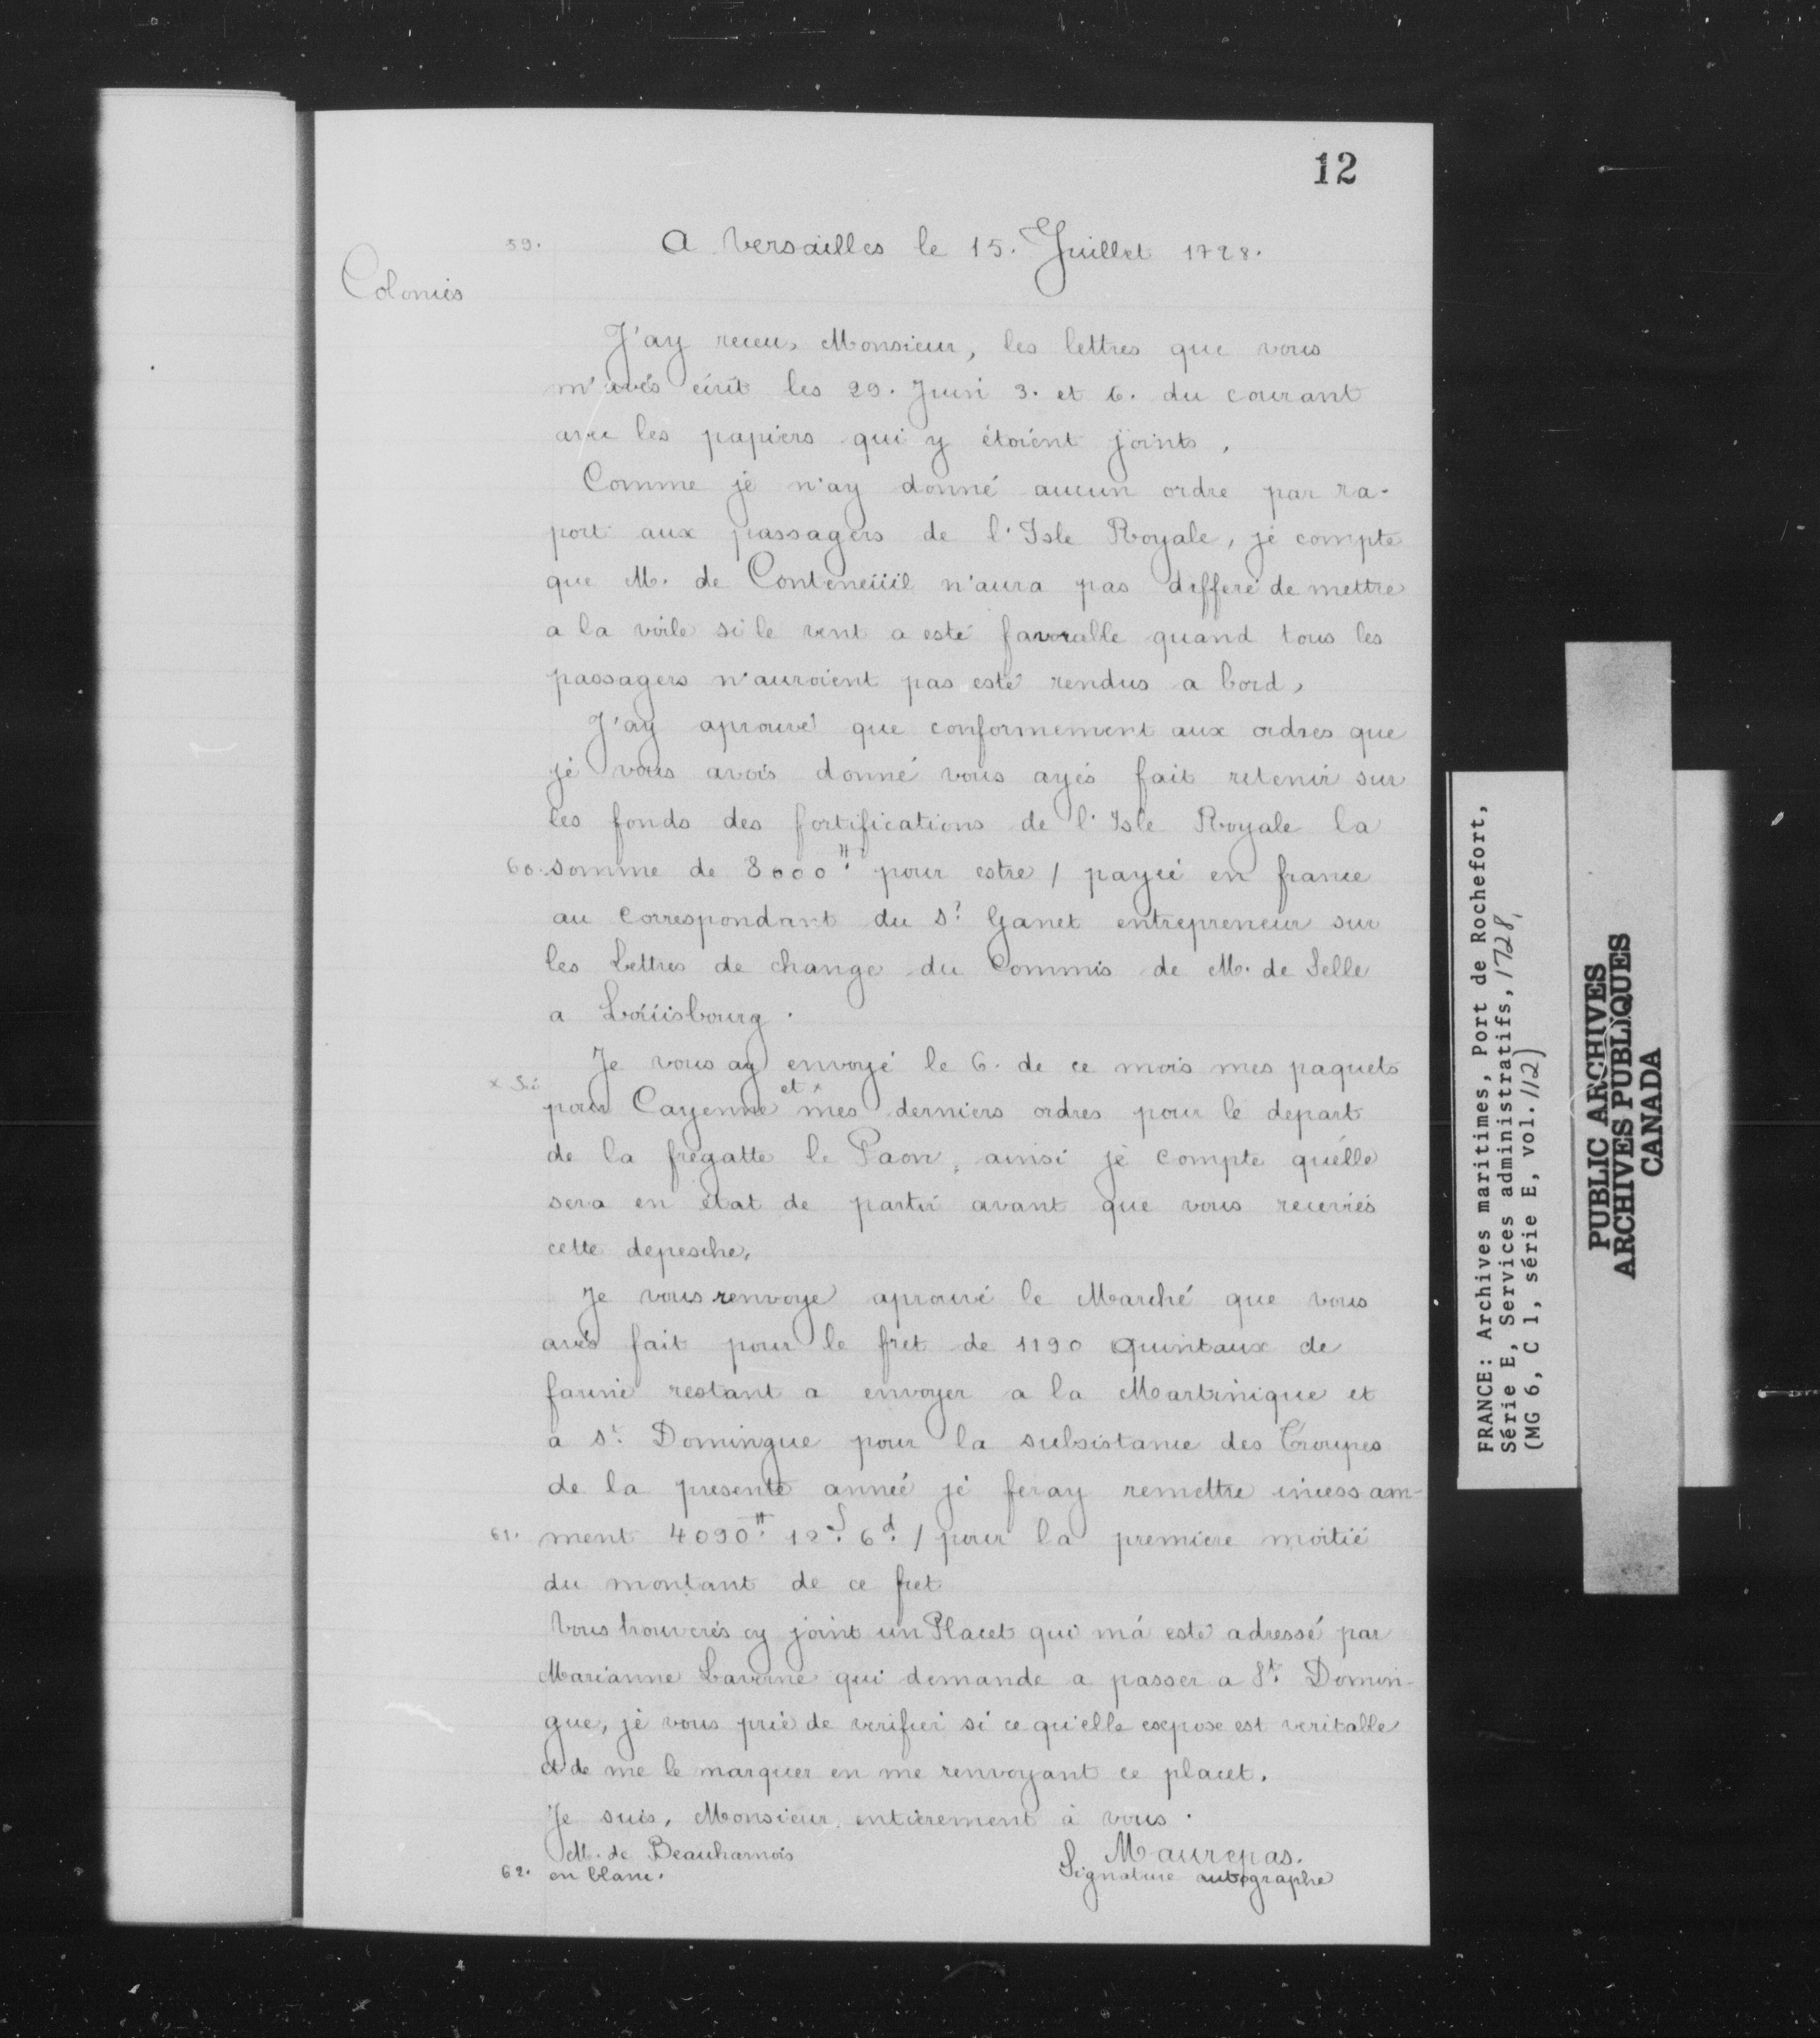 12
59. A Versailles le 15. Juillet 1728.
Colonies
J'ay receu, Monsieur, les lettres que vous
m'avés écrit les 29. Juin 3. et 6. du courant
avec les papiers qui y étoient joints,
Comme je n'ay donné aucun ordre par ra-
port aux passagers de l'Isle Royale, je compte
que M. de Conteneüil n'aura pas differé de mettre
a la voile si le vent a esté favorable quand tous les
passagers n'auroient pas esté rendus a bord,
J'ay aprouvé que conformement aux ordres que
je vous avois donné vous ayés fait retenir sur
les fonds des fortifications de l'Isle Royale la
60. somme de 8000tt. pour estre / payée en france
au Correspondant du Sr. Ganet entrepreneur sur
les Lettres de change du Commis de M. de Selle
a Loüisbourg.
Je vous ay envoyé le 6. de ce mois mes paquets
x Sic
pour Cayenne et x mes derniers ordres pour le depart
de la fregatte le Paon, ainsi je compte qu'elle
sera en état de partir avant que vous receviés
cette depesche,
Je vous renvoye aprouvé le Marché que vous
avés fait pour le fret de 1190 quintaux de
farine restant a envoyer a la Martinique et
a St. Domingue pour la subsistance des Troupes
de la presente année je feray remettre incessam-
61. ment 4090tt. 12s. 6d. / pour la premiere moitié
du montant de ce fret.
Vous trouverés cy joint un Placet qui m'a esté adressé par
Marianne Laverne qui demande a passer a St. Domin-
gue, je vous prie de verifier si ce qu'elle expose est veritable
et de me le marquer en me renvoyant ce placet.
Je suis, Monsieur, entièrement à vous.
M. de Beauharnois
Maurepas.
62. en blanc.
Signature autographe
FRANCE: Archives maritimes, Port de Rochefort,
Série E, Services administratifs, 1728,
(MG 6, C 1, série E, vol. 112)
PUBLIC ARCHIVES
ARCHIVES PUBLIQUES
CANADA